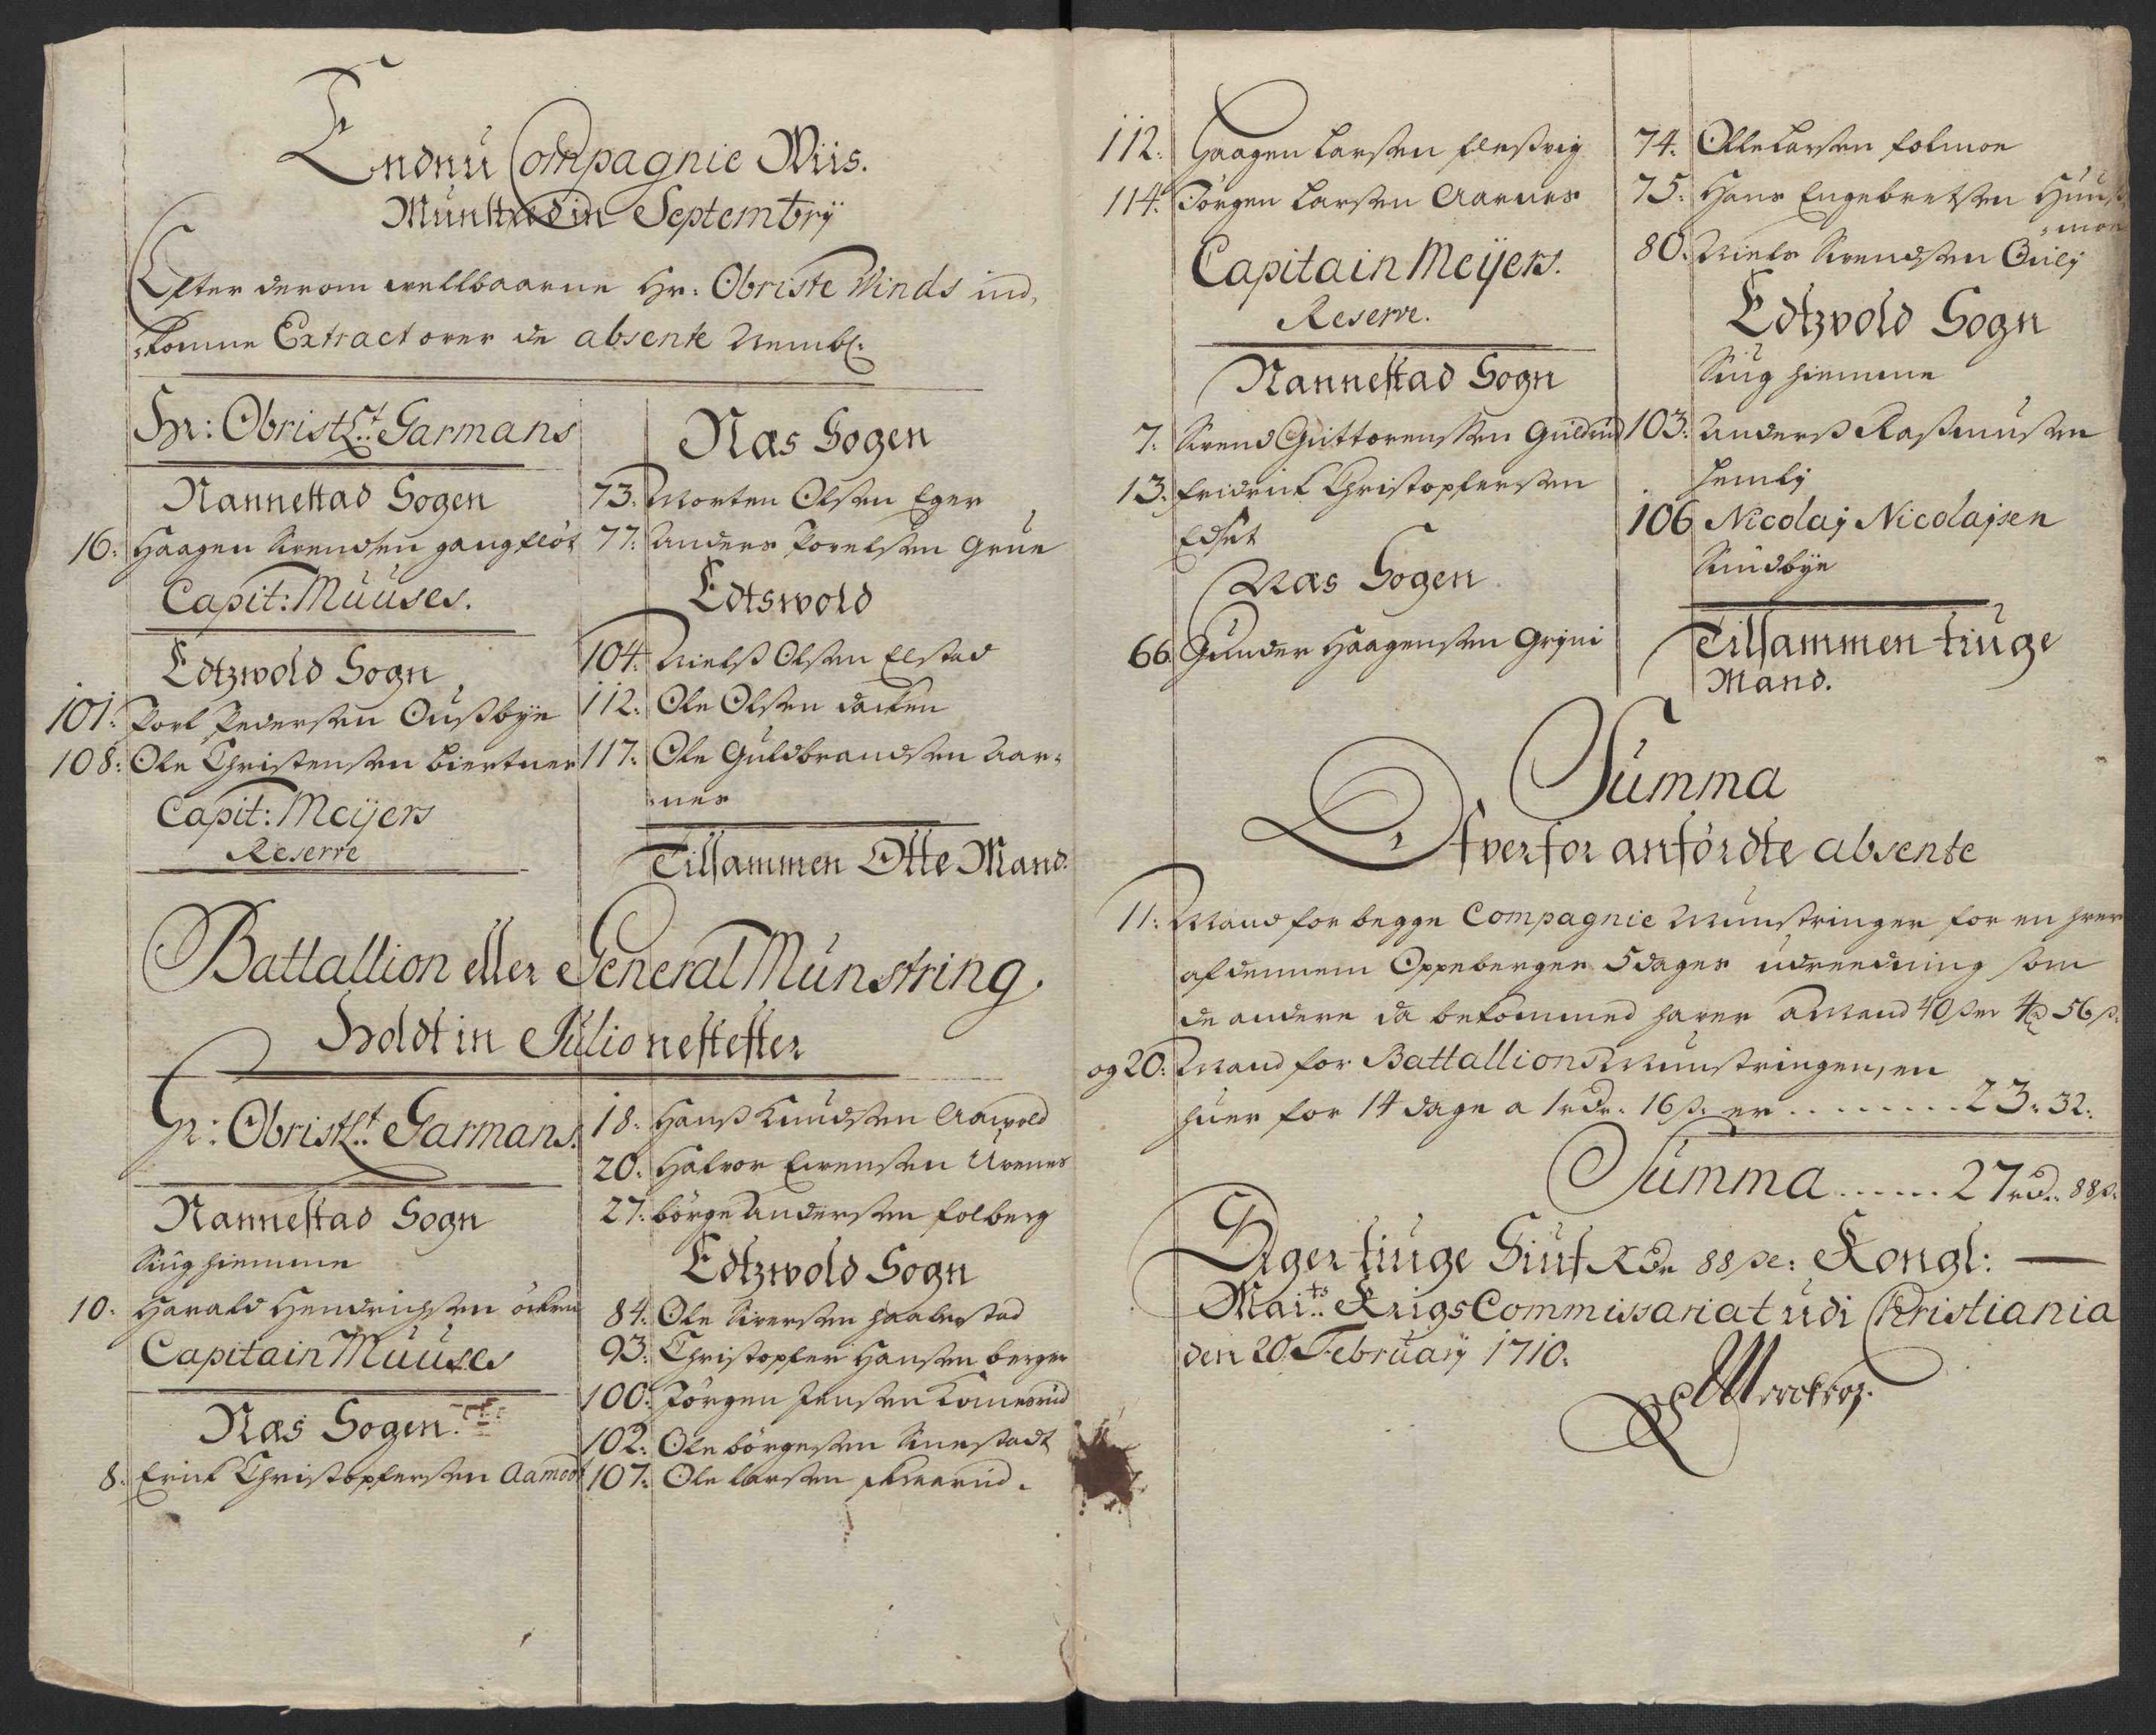 Endnu Compagnie Wiis.
Munstred in Septembrÿ
Efter derom wellbaarne Hr: Obriste Winds ind,
komne Extract over de absente Nembl:
Hr: Obristlt: Garmans
Nannestad Sogen
16: Haagen Svendsen gangfløt
Capit: Muuses.
Edtzwold Sogn
101: Poel Pedersen Oussbÿe
108: Ole Christensen Biertnes
Capit: Meÿers
Reserve
Næs Sogen
73: Morten Olsen Eger
77: Anders Povelsen Grue
Edtswold
104: Nielss Olsen Elstad
112: Ole Olsen Dachen
117: Ole Guldbrandsen Aar-
nes
Tilsammen Otte Mand.
Battallion eller General Munstring
Holdt in Julio nestefter
Hr: Obristlt: Garmans.
Nannestad Sogn
Siug hiemme
10: Harald Hendrichsen
Capitain Muuses
Næs Sogen.
8: Erick Christophersen Aamodt
18: Hanss Knudsen Aawold
20: Halvor Evensen
27: Börge Andersen Folberg
Edtzwold Sogn
84: Ole Siversen Haalerstad
93: Christopher Hansen Berger
100: Jörgen Jensen
102: Ole Börgesen
107: Ole Larsen
112: Haagen Larsen
114: Jörgen Larsen Aarnes
Capitain Meÿers.
Reserve.
Nannestad Sogn
7: Svend Guttormsen
13: Fridrick Christophersen
Edset
Næs Sogen
66 Gunder Haagensen
74: Olle Larsen Folmoe
75: Hans Engebretsen Huuss
moe
80: Niels Svendsen
Edtzvold Sogn
Siug hiemme
103: Anderss Rassmussen
106 Nicolaj Nicolajsen
Sundbÿe
Tilsammen tiuge
Mand.
Summa
Ofverfor anfördte absente
11: Mand for begge Compagnie Munstringer for en hver
af dennem Oppeberger 5 dages udreedning som
de andere da bekommed haver a Mand 40 s er 4 rd 56 s:
og 20: Mand for Battallions Munstringen, en
huer for 14 dage a 1 rdr: 16 s: er ......... 23: 32:
Summa ...... 27 rd: 88 s:
Siger tiuge Siuf Rdr 88 se: Kongl:
Maits: KrigsCommissariat udi Christiania
den 20 Februarÿ 1710: